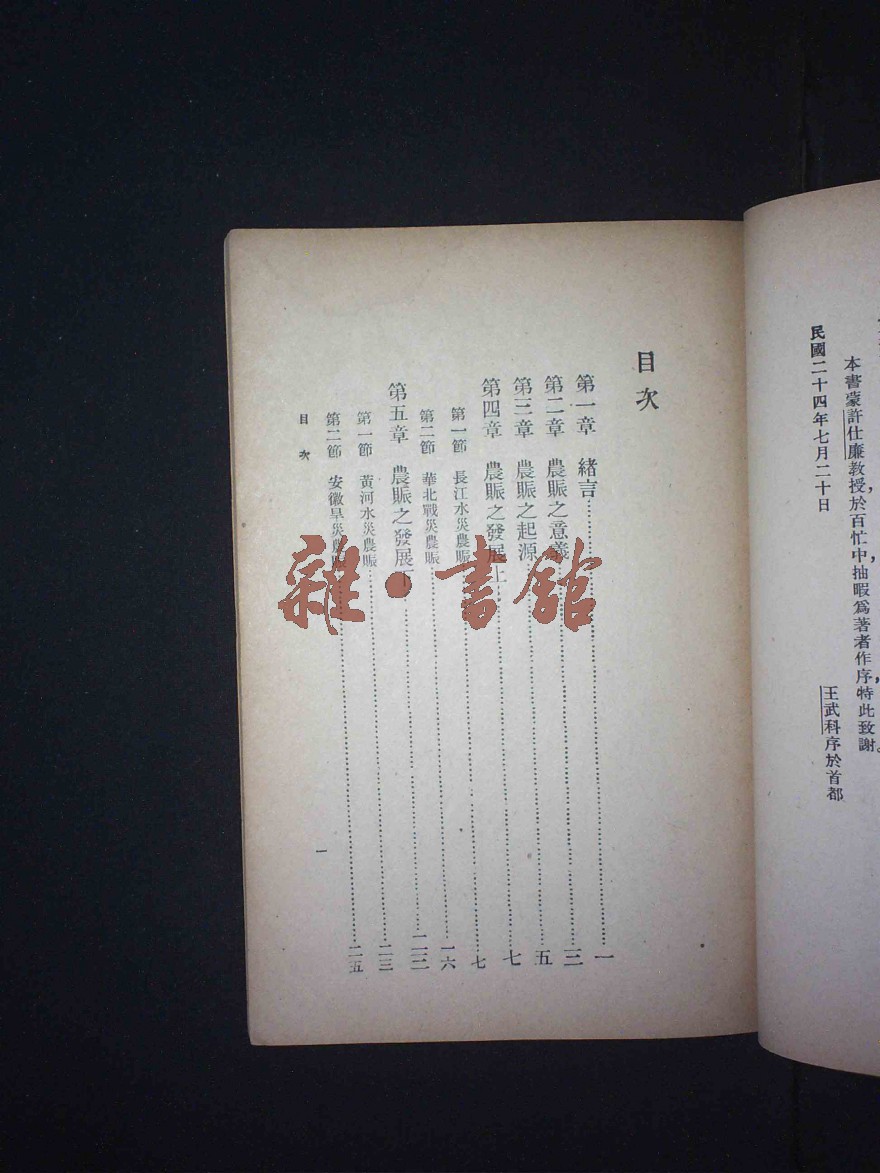 本書蒙許仕廉教授於百忙中抽暇爲著者作序，特此致謝。
民國二十四年七月二十日
王武科序於首都
目次
第一章 緒言……一
第二章 農賑之意義……三
第三章 農賑之起源……五
第四章 農賑之發展上……七
第一節 長江水災農賑……七
第二節 華北戰災農賑……一六
第五章 農賑之發展下……二三
第一節 黃河水災農賑……二三
第二節 安徽旱災農賑……二五
目次
一
雜·書館